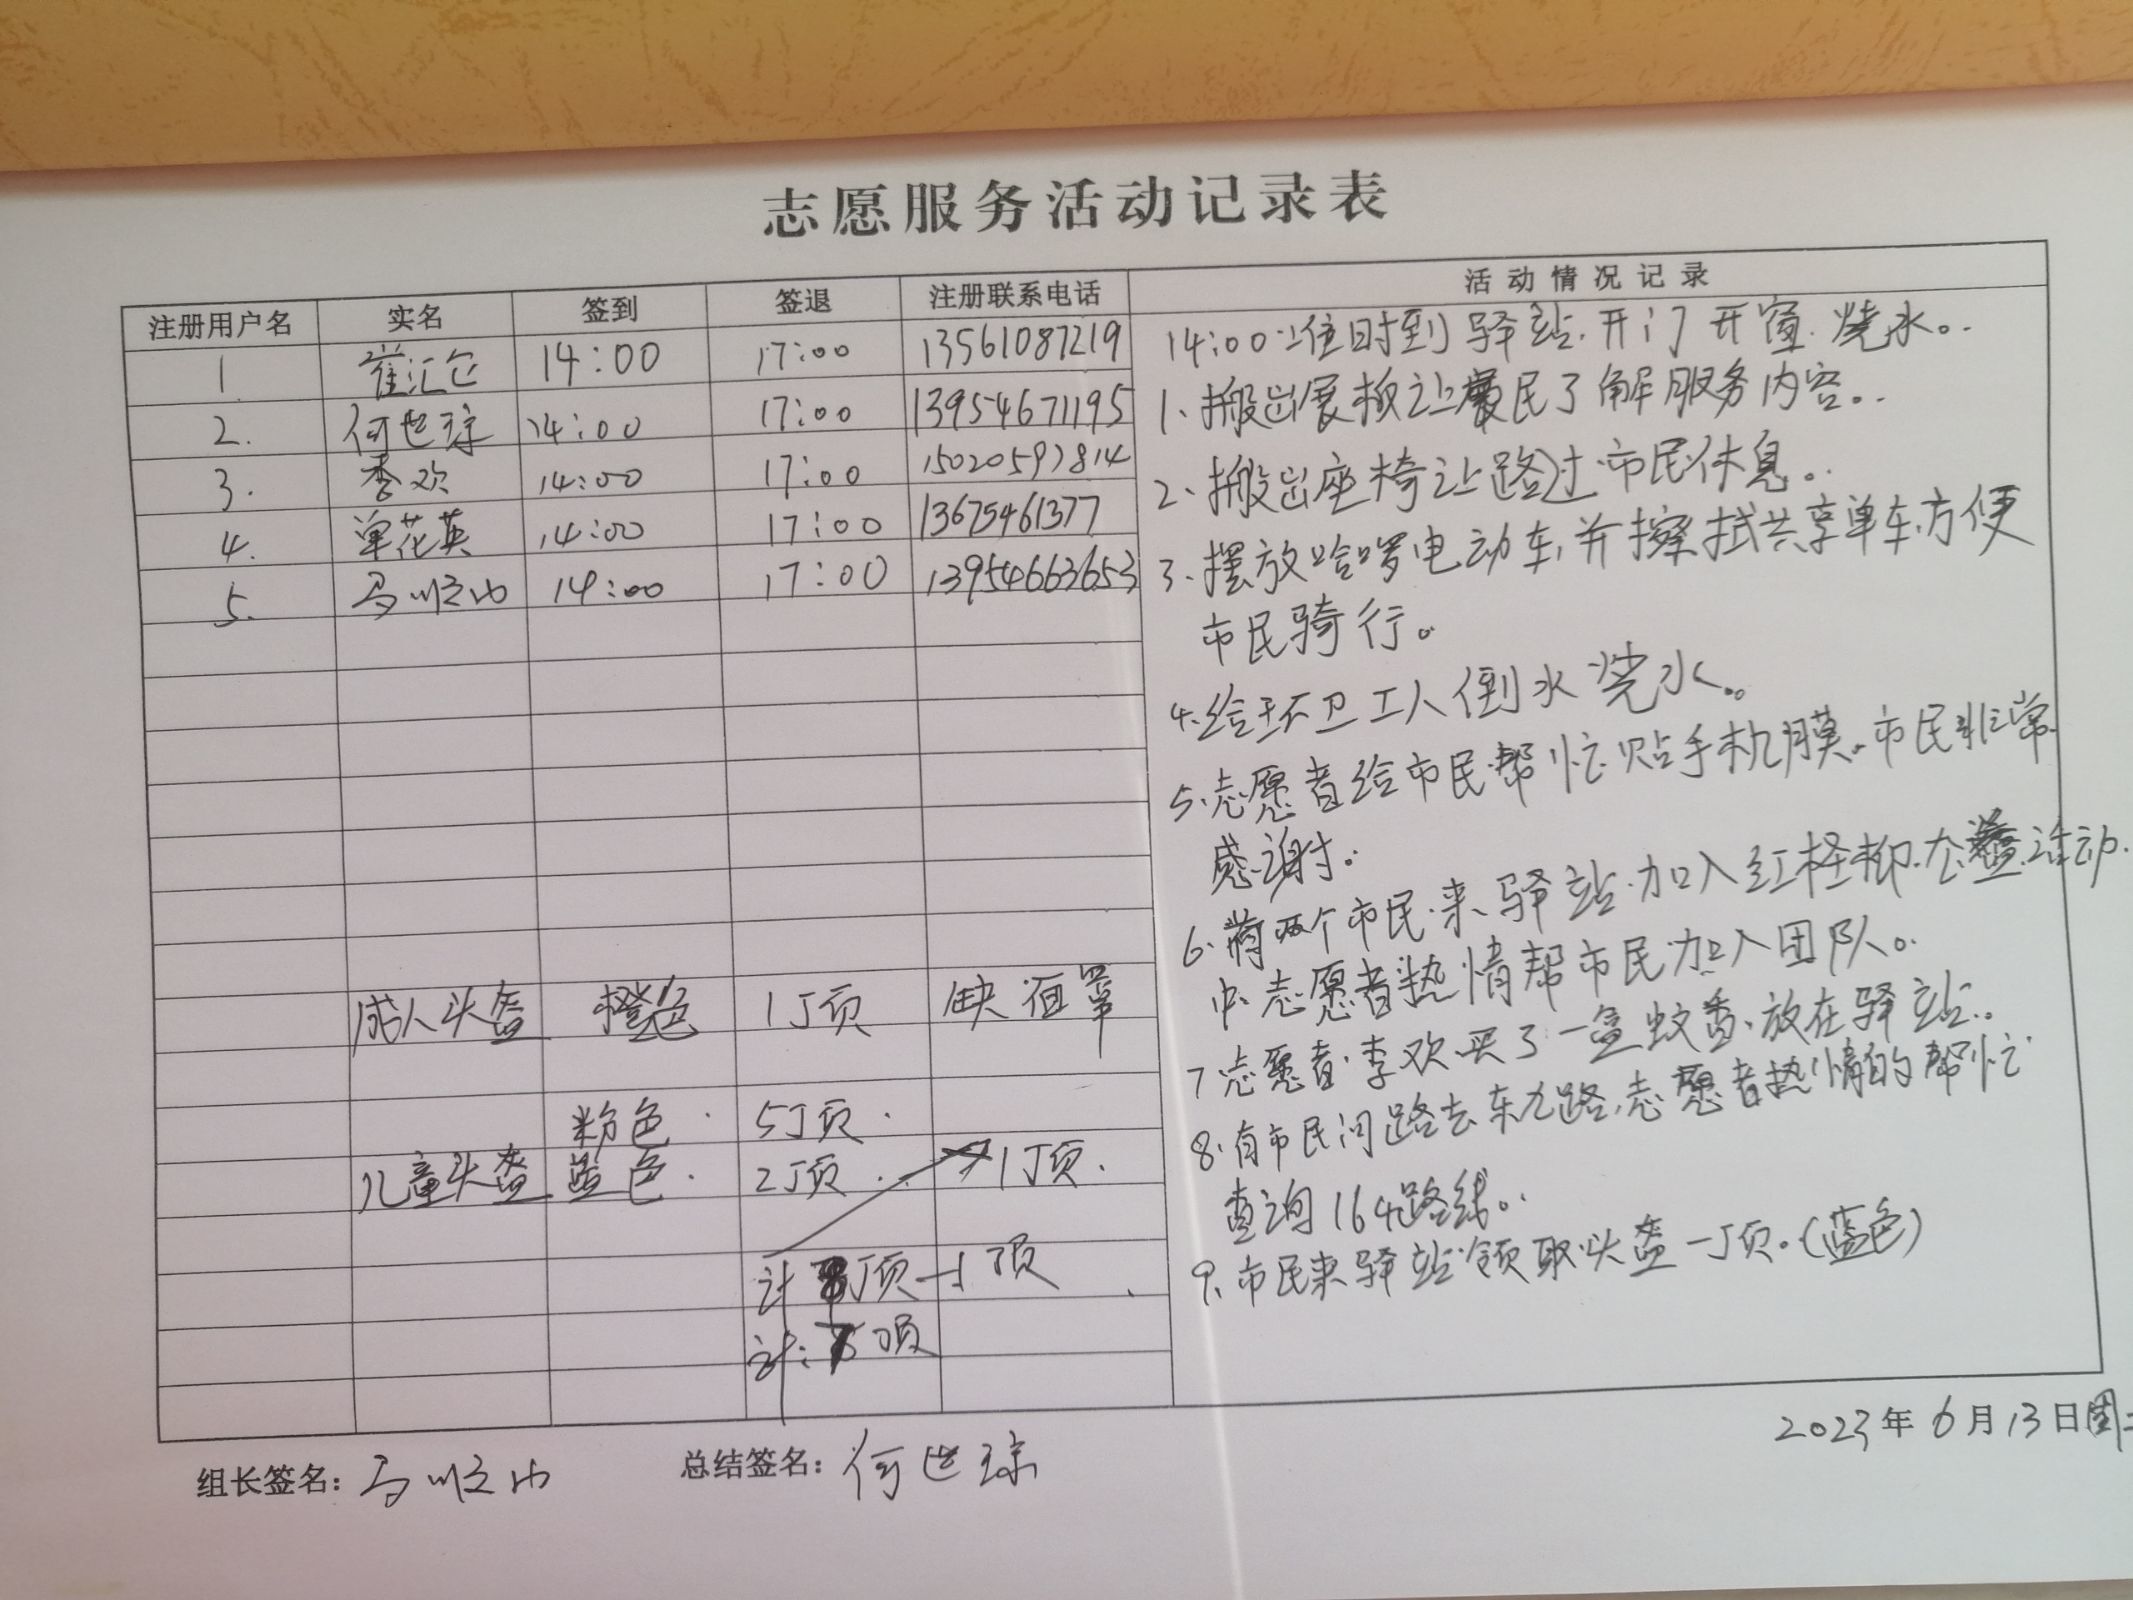 志愿服务活动记录表
注册用户名 实名 签到 签退 注册联系电话 活动情况记录
1 崔汇仓 14:00 17:00 13561087219
2. 何世琼 14:00 17:00 13954671195
3. 李欢 14:00 17:00 15020597814
4. 单花英 14:00 17:00 13675461377
5. 马顺山 14:00 17:00 13954663653
成人头盔 橙色 1顶 缺 罩
粉色. 5顶.
儿童头盔 蓝色. 2顶. 1顶.
计8顶-1顶
计:7顶
14:00准时到驿站.开门开窗.烧水。
1、搬出展板让居民了解服务内容。
2、搬出座椅让路过市民休息。
3、摆放哈啰电动车,并擦拭共享单车,方便
市民骑行。
4.给环卫工人倒水烧水。
5、志愿者给市民帮忙贴手机膜。市民非常
感谢。
6、有两个市民来驿站.加入红柽柳.公益活动.
中.志愿者热情帮市民加入团队。
7.志愿者李欢买了一盒蚊香、放在驿站。
8、有市民问路去东九路,志愿者热情的帮忙
查询164路线。
9、市民来驿站领取头盔一顶。(蓝色)
2023年6月13日周二
组长签名:马顺山 总结签名:何世琼